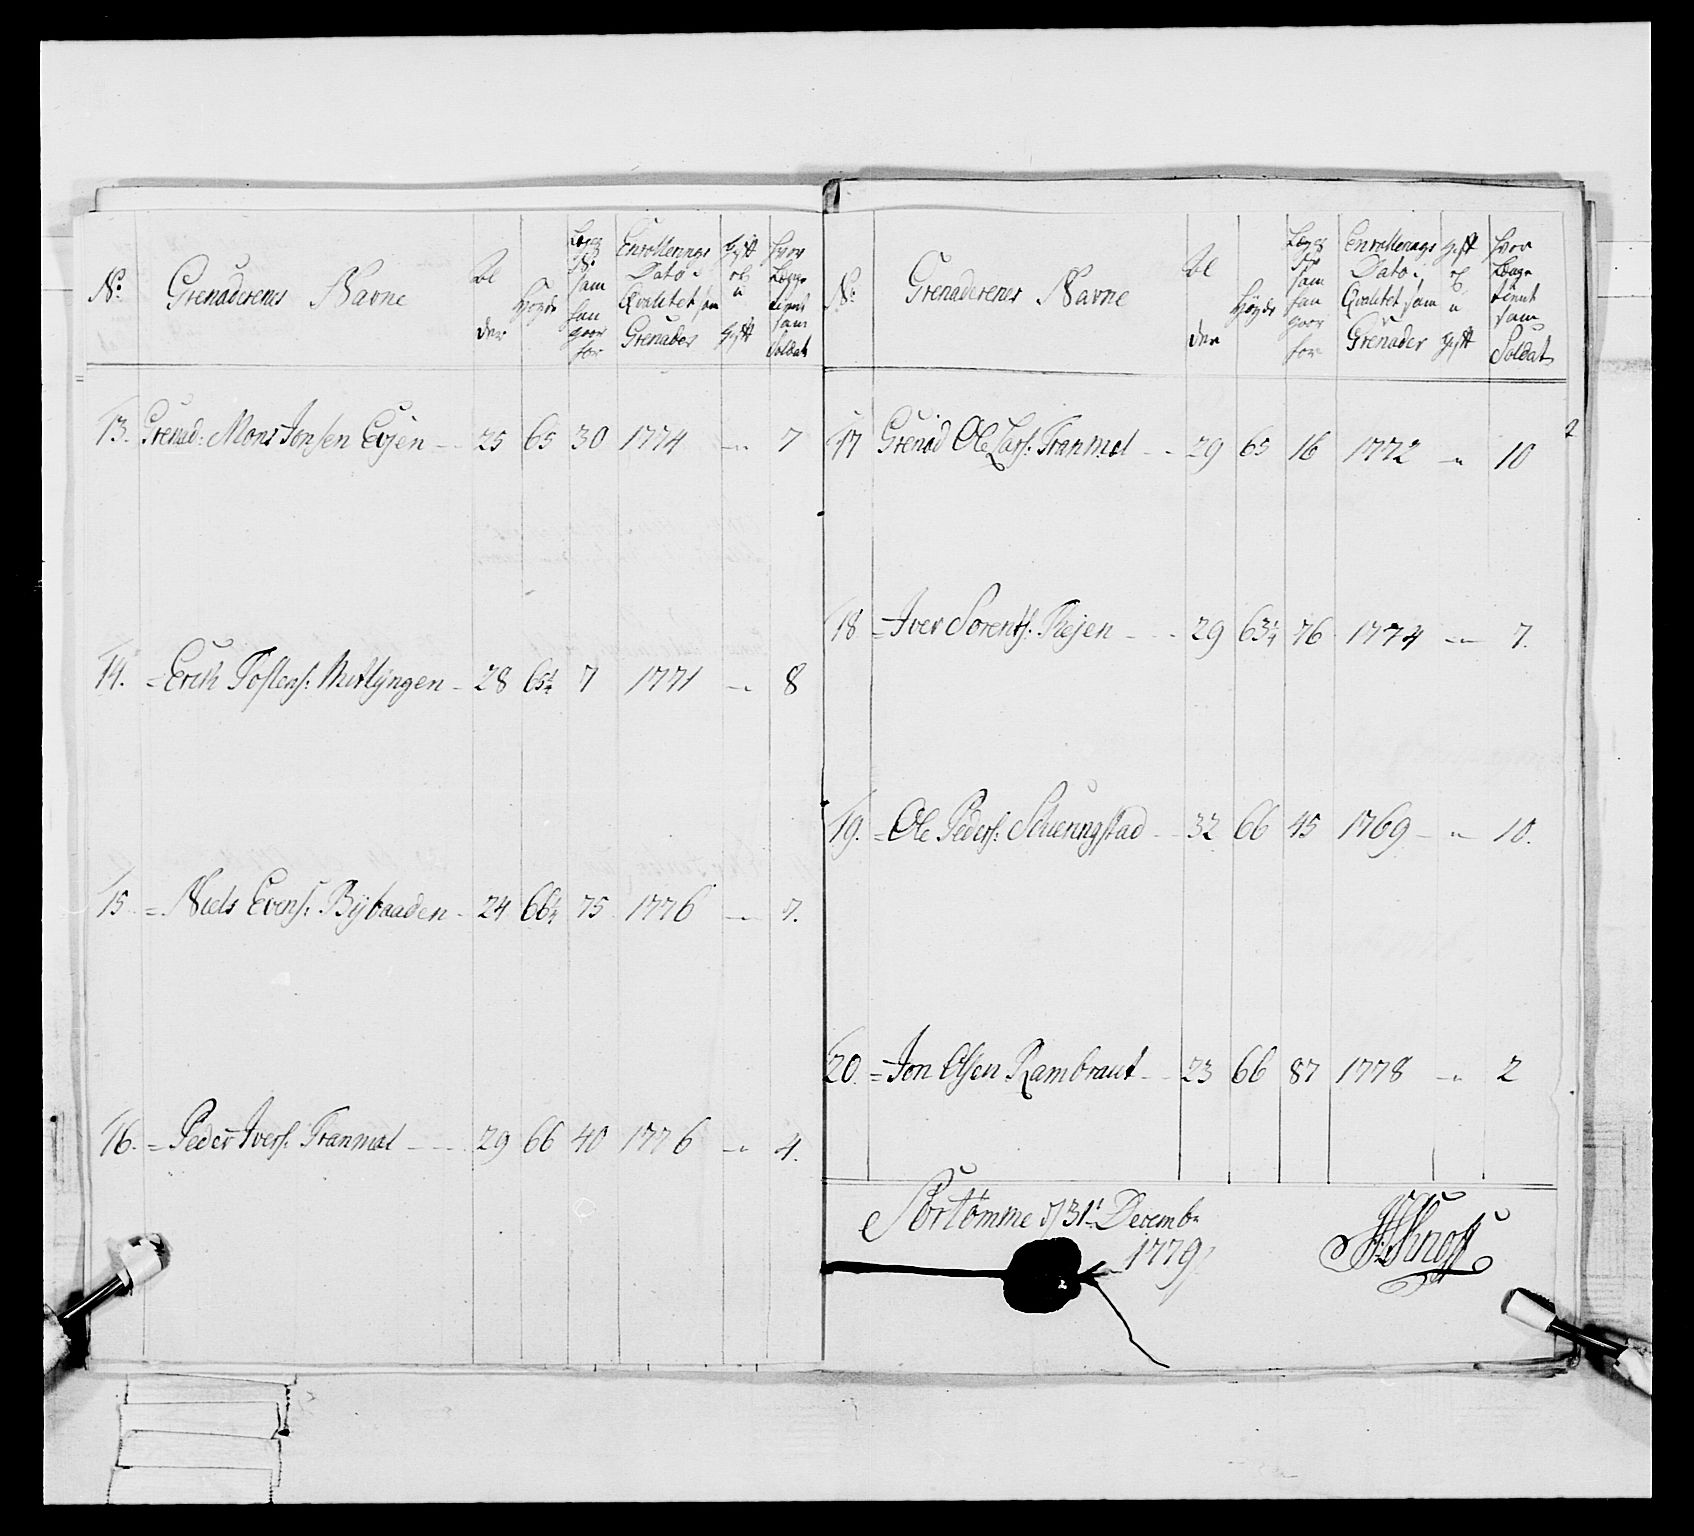 No: Grenaderenes Navne Al der Høyde Lægs No: sam han goer for Enrollerings Dato i Qvalitet som Grenader Gift og u Gift Hvor Længe tient sam Soldat
13. Grenad: Mons Jonsen Evjen - - 25 65 30 1774 - " - 7
14. = Erich Tostens: Mitlyngen - 28 65½ 7 1771 - " - 8
15 = Niels Evens: Bybaaden - 24 66¼ 75 1776 - " - 7.
16. = Peder Ivers: Tranmæl - - - 29 66 40 1776 - " - 4.
No: Grenaderenes Navne Al der Høyde Lægs No sam han goer for Enrollerings Dato i Qvalitet som Grenader Gift og u Gift Hvor Længe tient sam Soldat
2
17 Grenad Ole Lars: Tranmæl - - 29 65 16 1772 - " 10
18 = Iver Sorents: Reien - - - 29 63¼ 76 1774 - " - 7.
19. = Ole Peders: - - 32 66 45 1769 - " - 10.
20. = Jon Elsen Rambraut - - 23 66 87 1778 - " 2
Portømme d 31t Decembr
1779